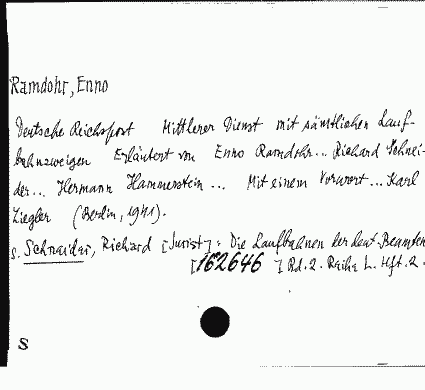 Ramdohr, Enno
Deutsche Reichspost Mittlerer Dienst mit sämtlichen Lauf-
bahnzweigen Erläutert von Enno Ramdohr... Richard Schnei-
der... Hermann Hammerstein ... Mit einem Vorwort ... Karl
Ziegler (Berlin, 1941).
s. Schneider, Richard [Jurist]: Die Laufbahnen der deut. Beamten
[162646] Bd. 2. Reihe L. Hft. 2.
S